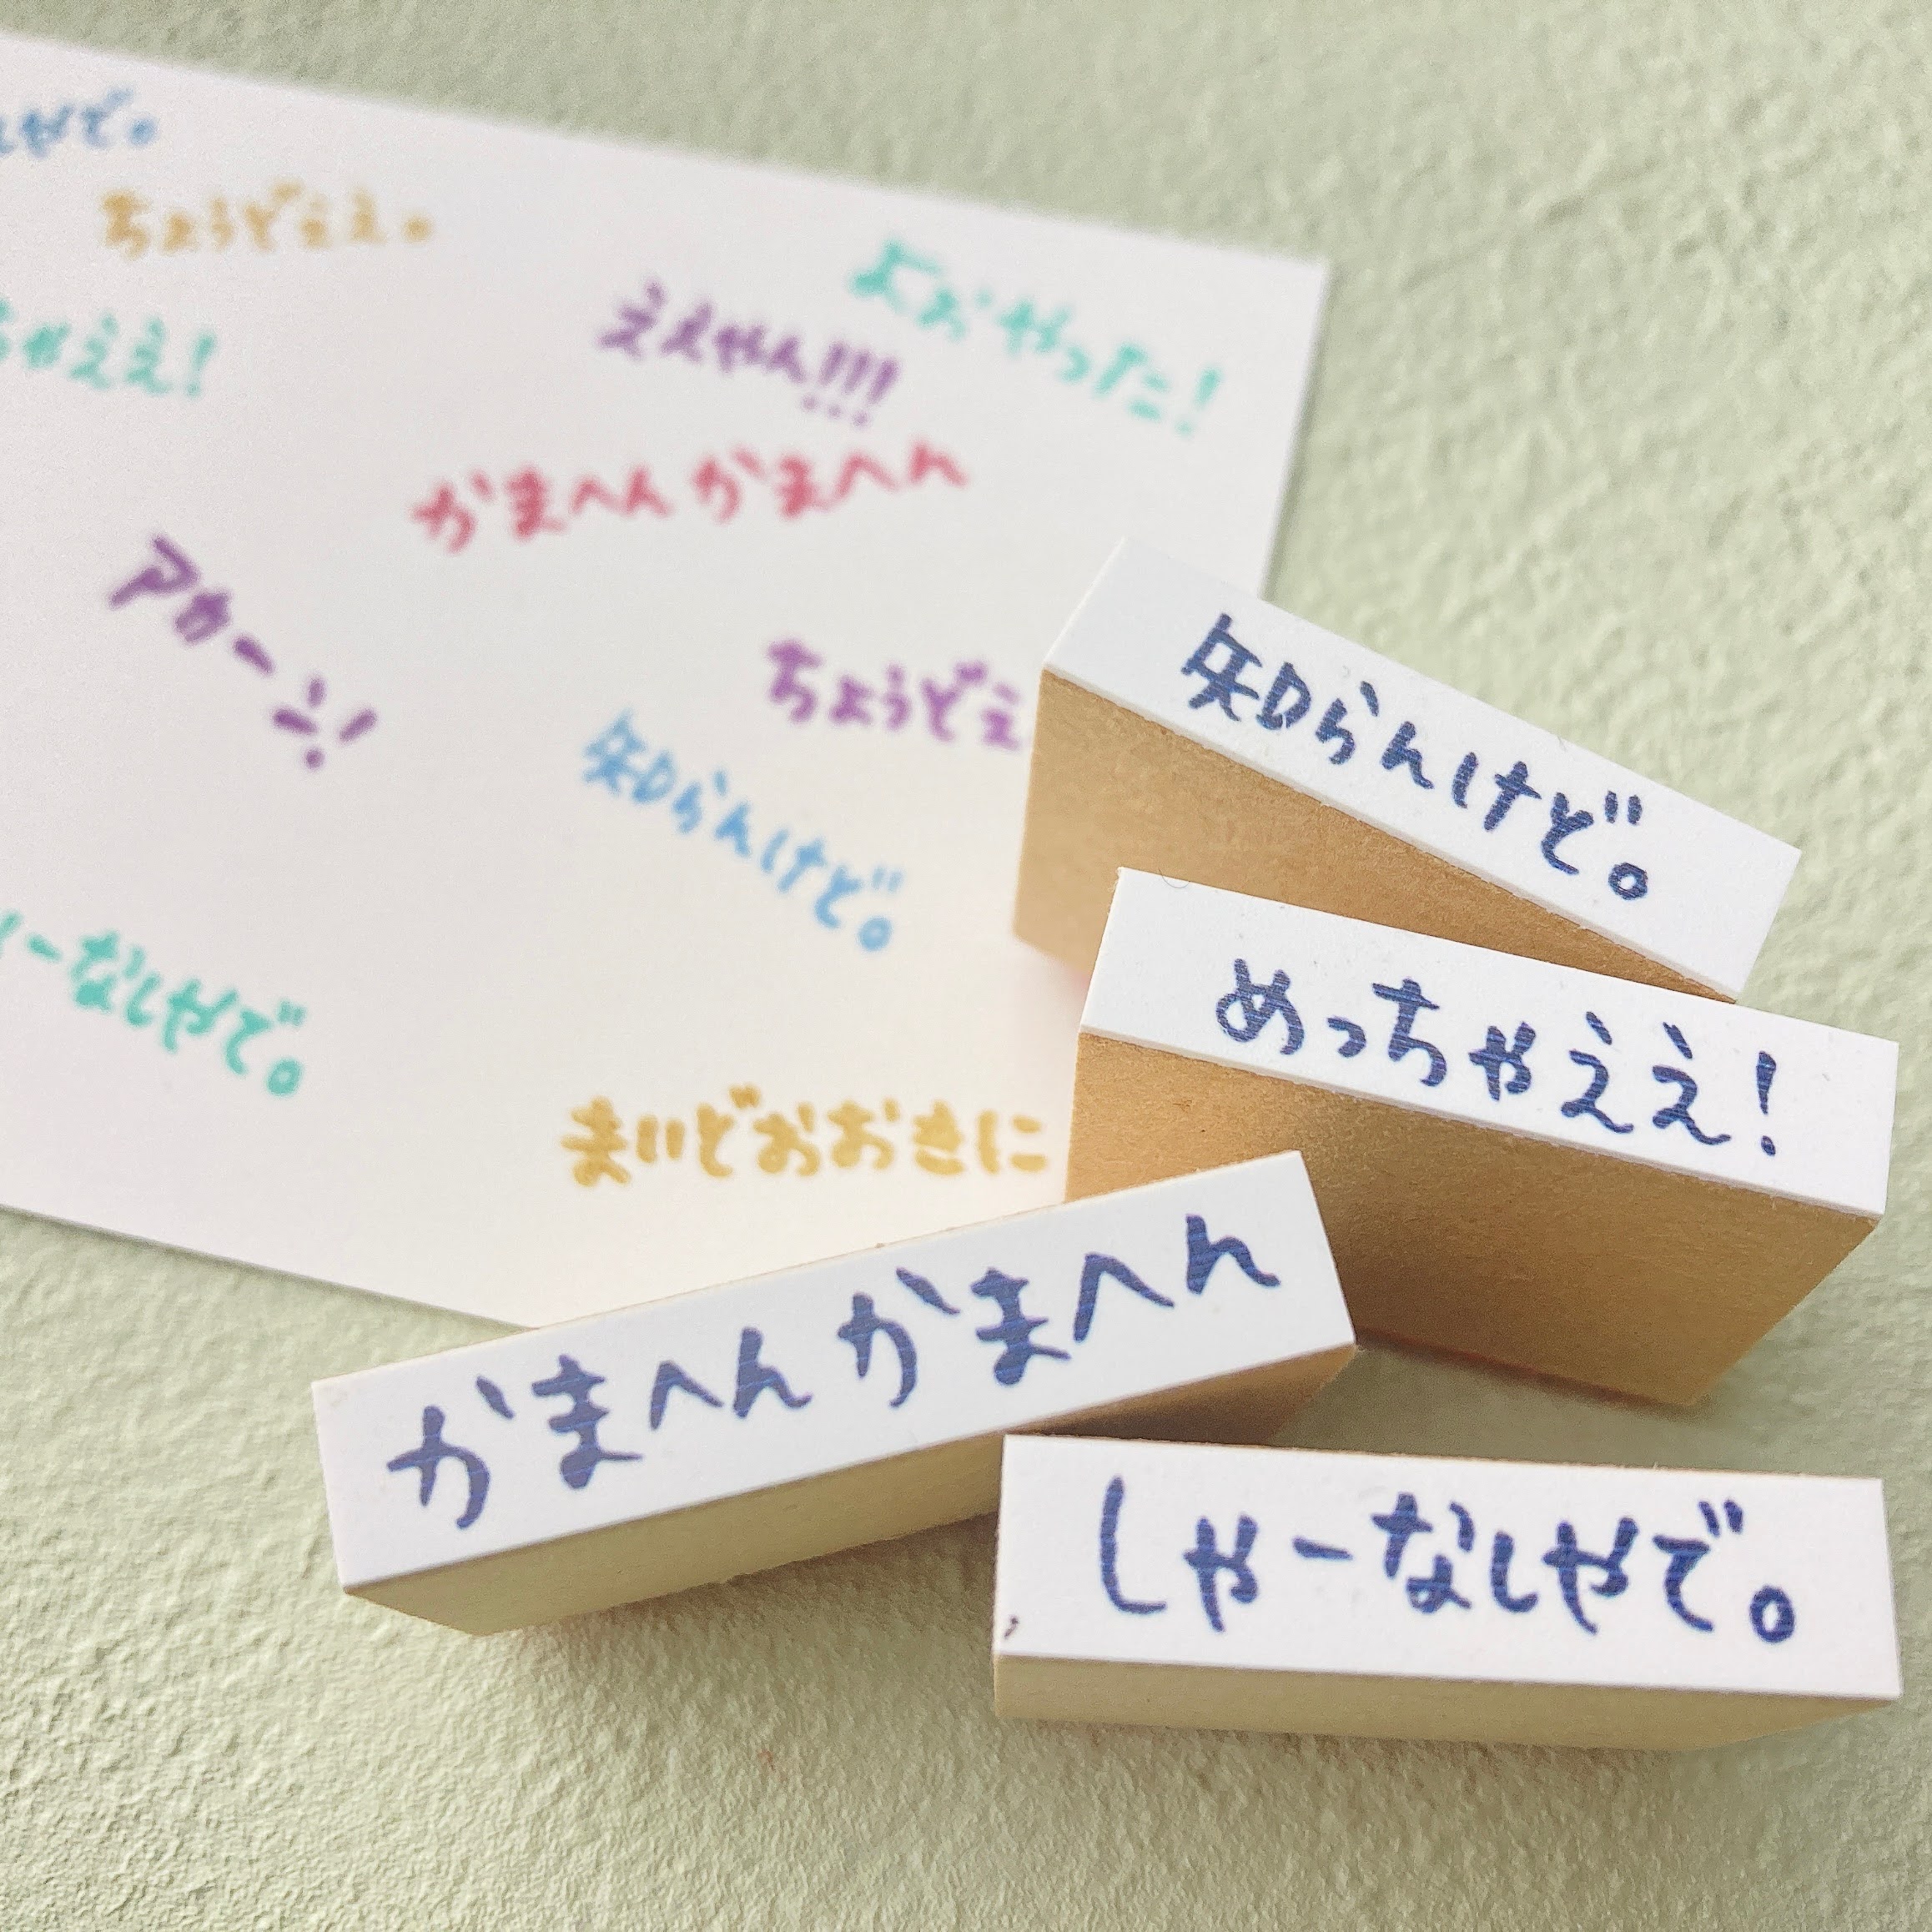 しやで。
ちょうどええ。
ちゃええ!
ええやん!!!
よおやったこ!
かまへんかまへん
アカーン!
ちょうどえ
知らんけど。
ーなしやで。
まいどおおきに
知らんけど。
めっちゃええ!
かまへんかまへん
しゃーなしやで。